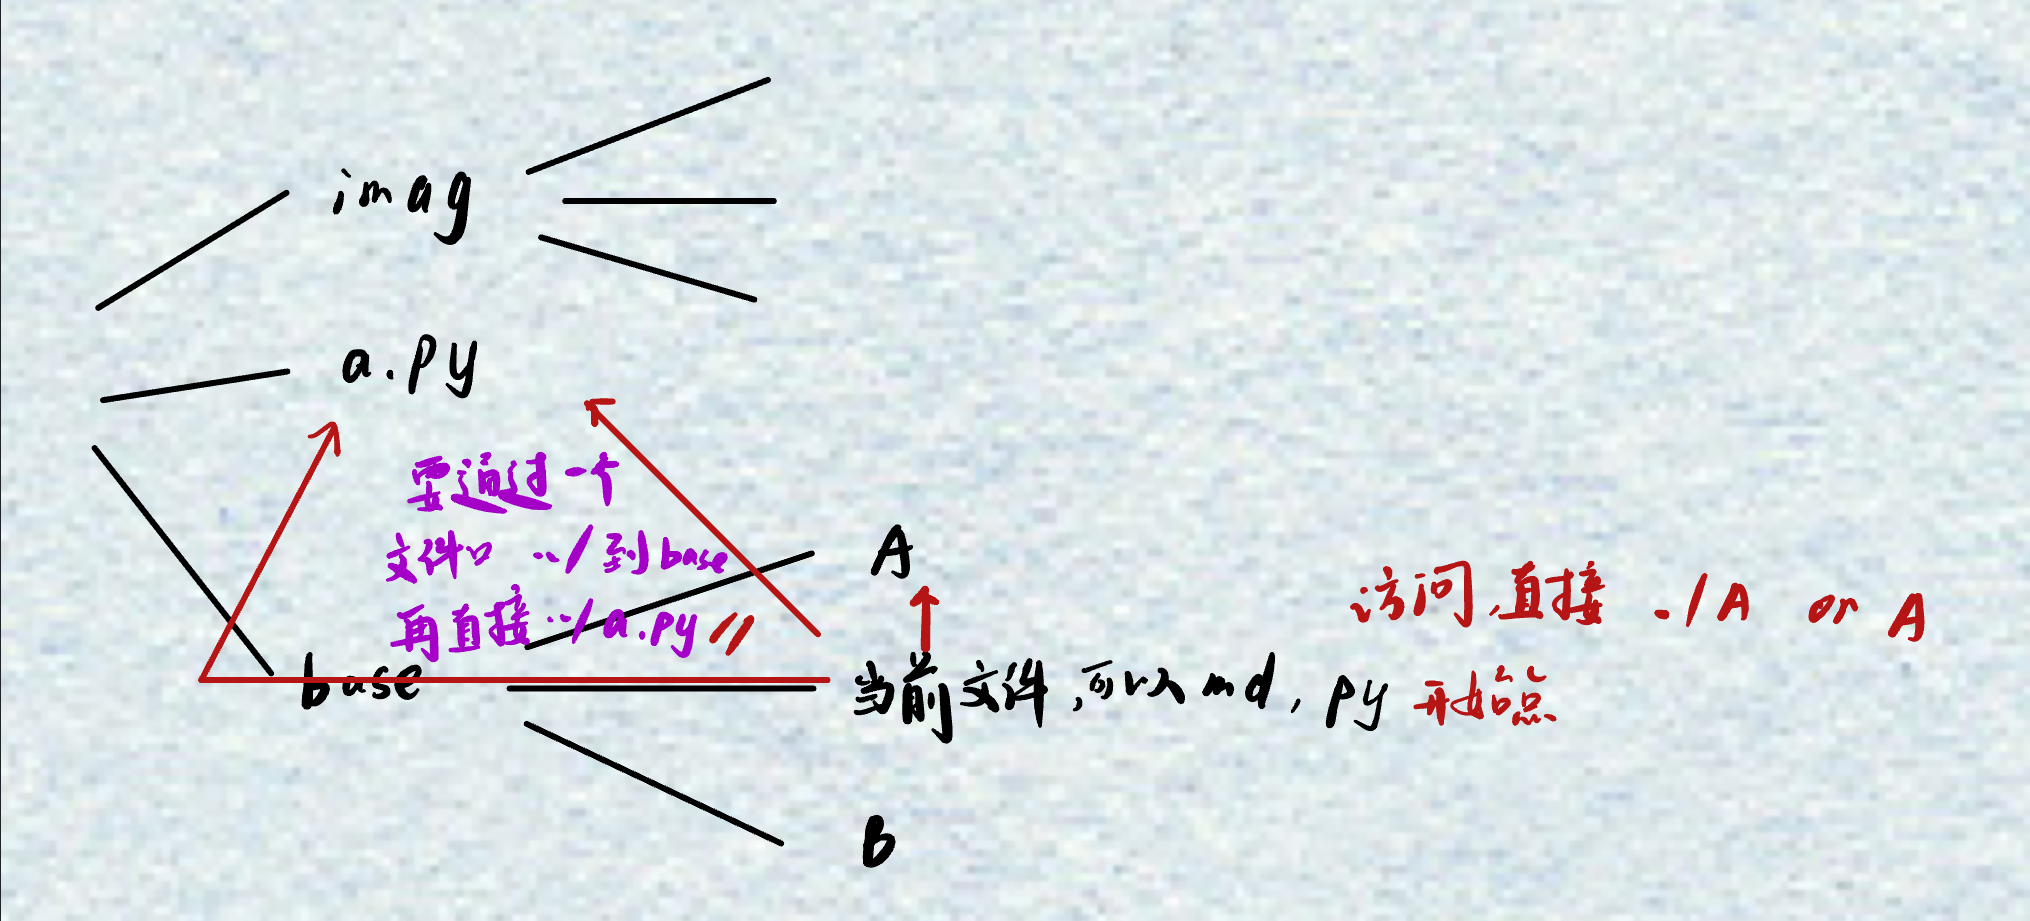 imag
a.py
要通过一个
文件口 ../到base
再直接../a.py
A
访问,直接 ./A or A
base
当前文件,可以md, py 开始点
B